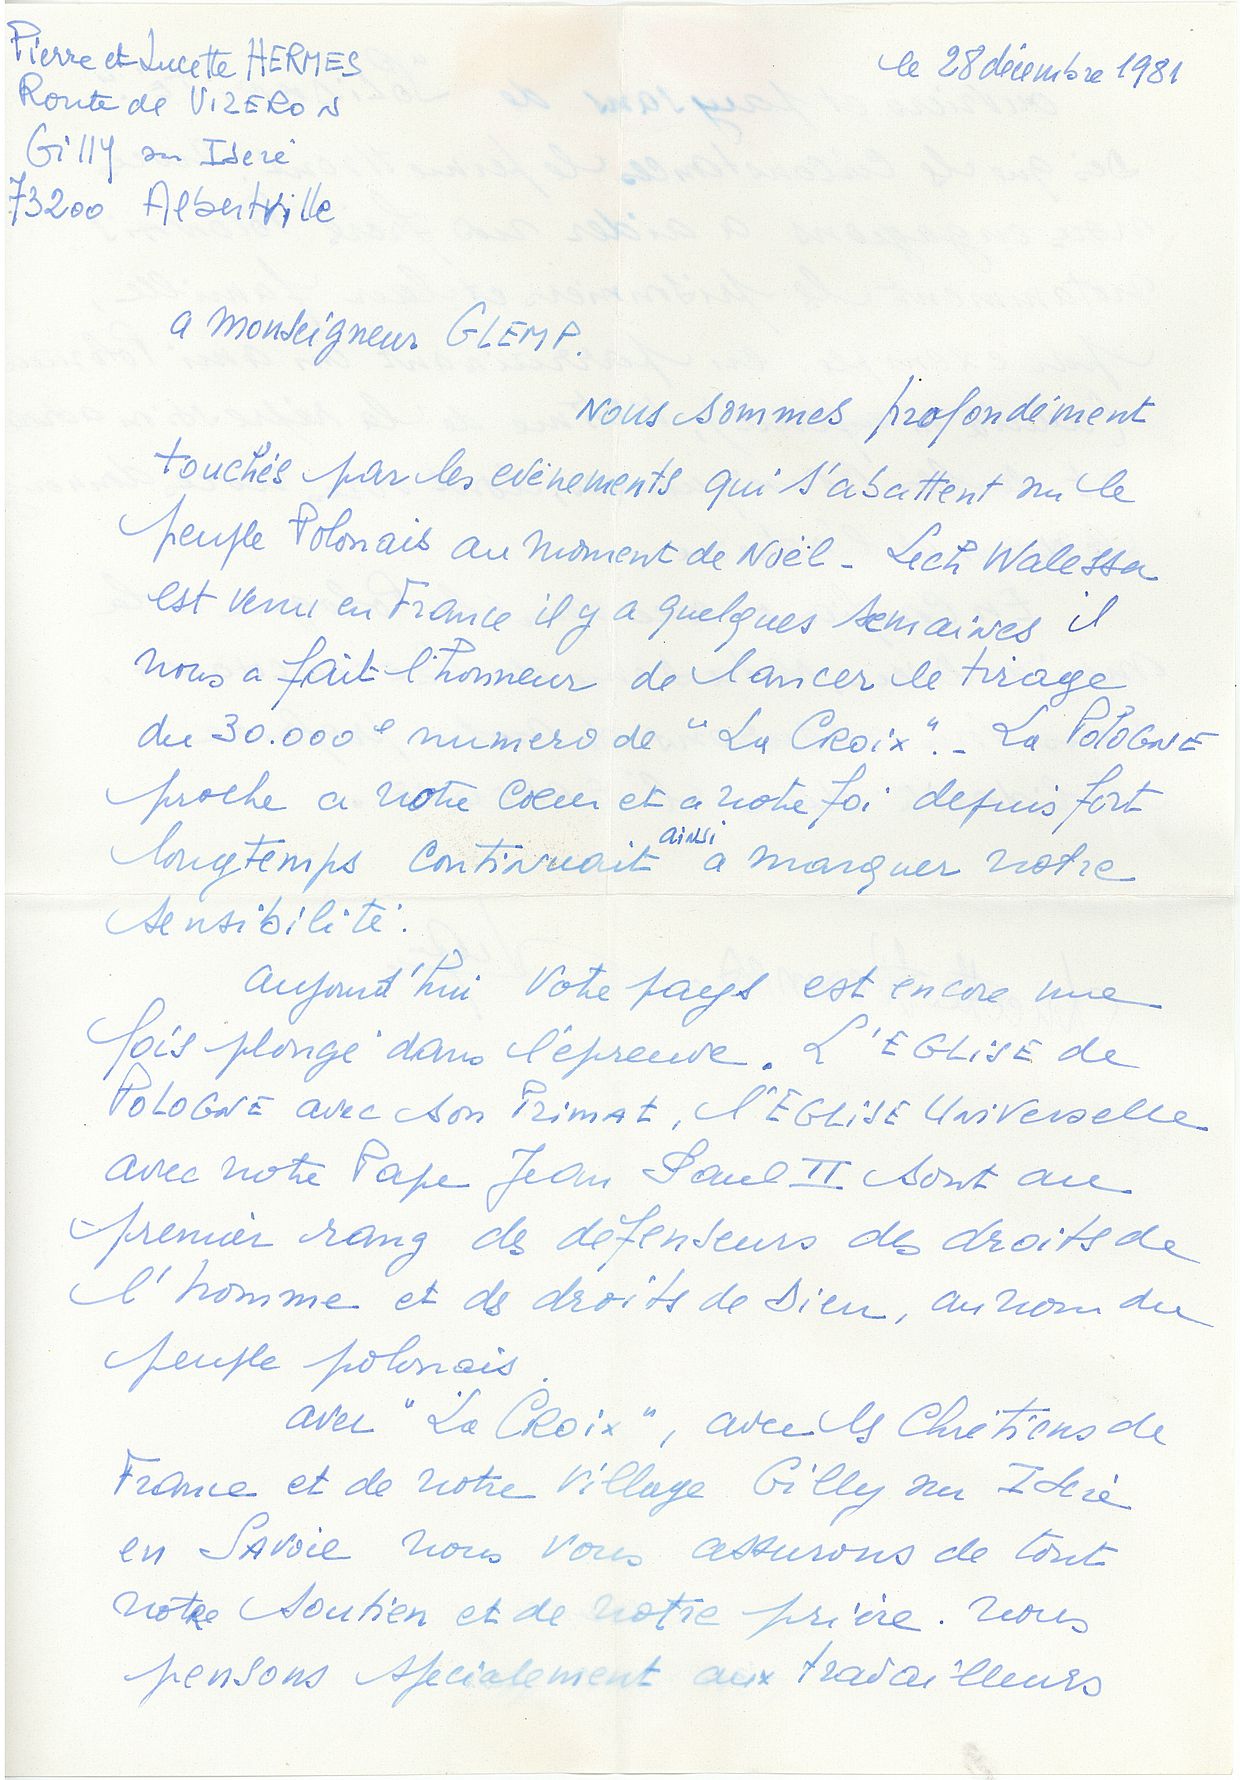 Pierre et Lucette HERMES
le 28 décembre 1981
Route de VIZERON
Gilly sur Isère
73200 Albertville
a Monseigneur GLEMP.
Nous sommes profondément
touchés par les evènements qui s'abattent sur le
peuple Polonais au moment de Noël - Lech Walessa
est venu en France il y a quelques semaines il
nous a fait l'honneur de lancer le tirage
du 30.000e numero de "La CROIX". - La POLOGNE
proche a notre coeur et a notre foi depuis fort
longtemps continuait ainsi a marquer notre
sensibilité.
Aujourd'hui votre pays est encore une
fois plongé dans l'épreuve. L'EGLISE de
POLOGNE avec son Primat, l'EGLISE Universelle
avec notre Pape Jean Paul II sont au
premier rang des défenseurs des droits de
l'homme et des droits de Dieu, au nom du
peuple polonais.
avec "La CROIX", avec les Chrétiens de
France et de notre village Gilly sur Isère
en SAVOIE nous vous assurons de tout
notre soutien et de notre prière. Nous
pensons spécialement aux travailleurs